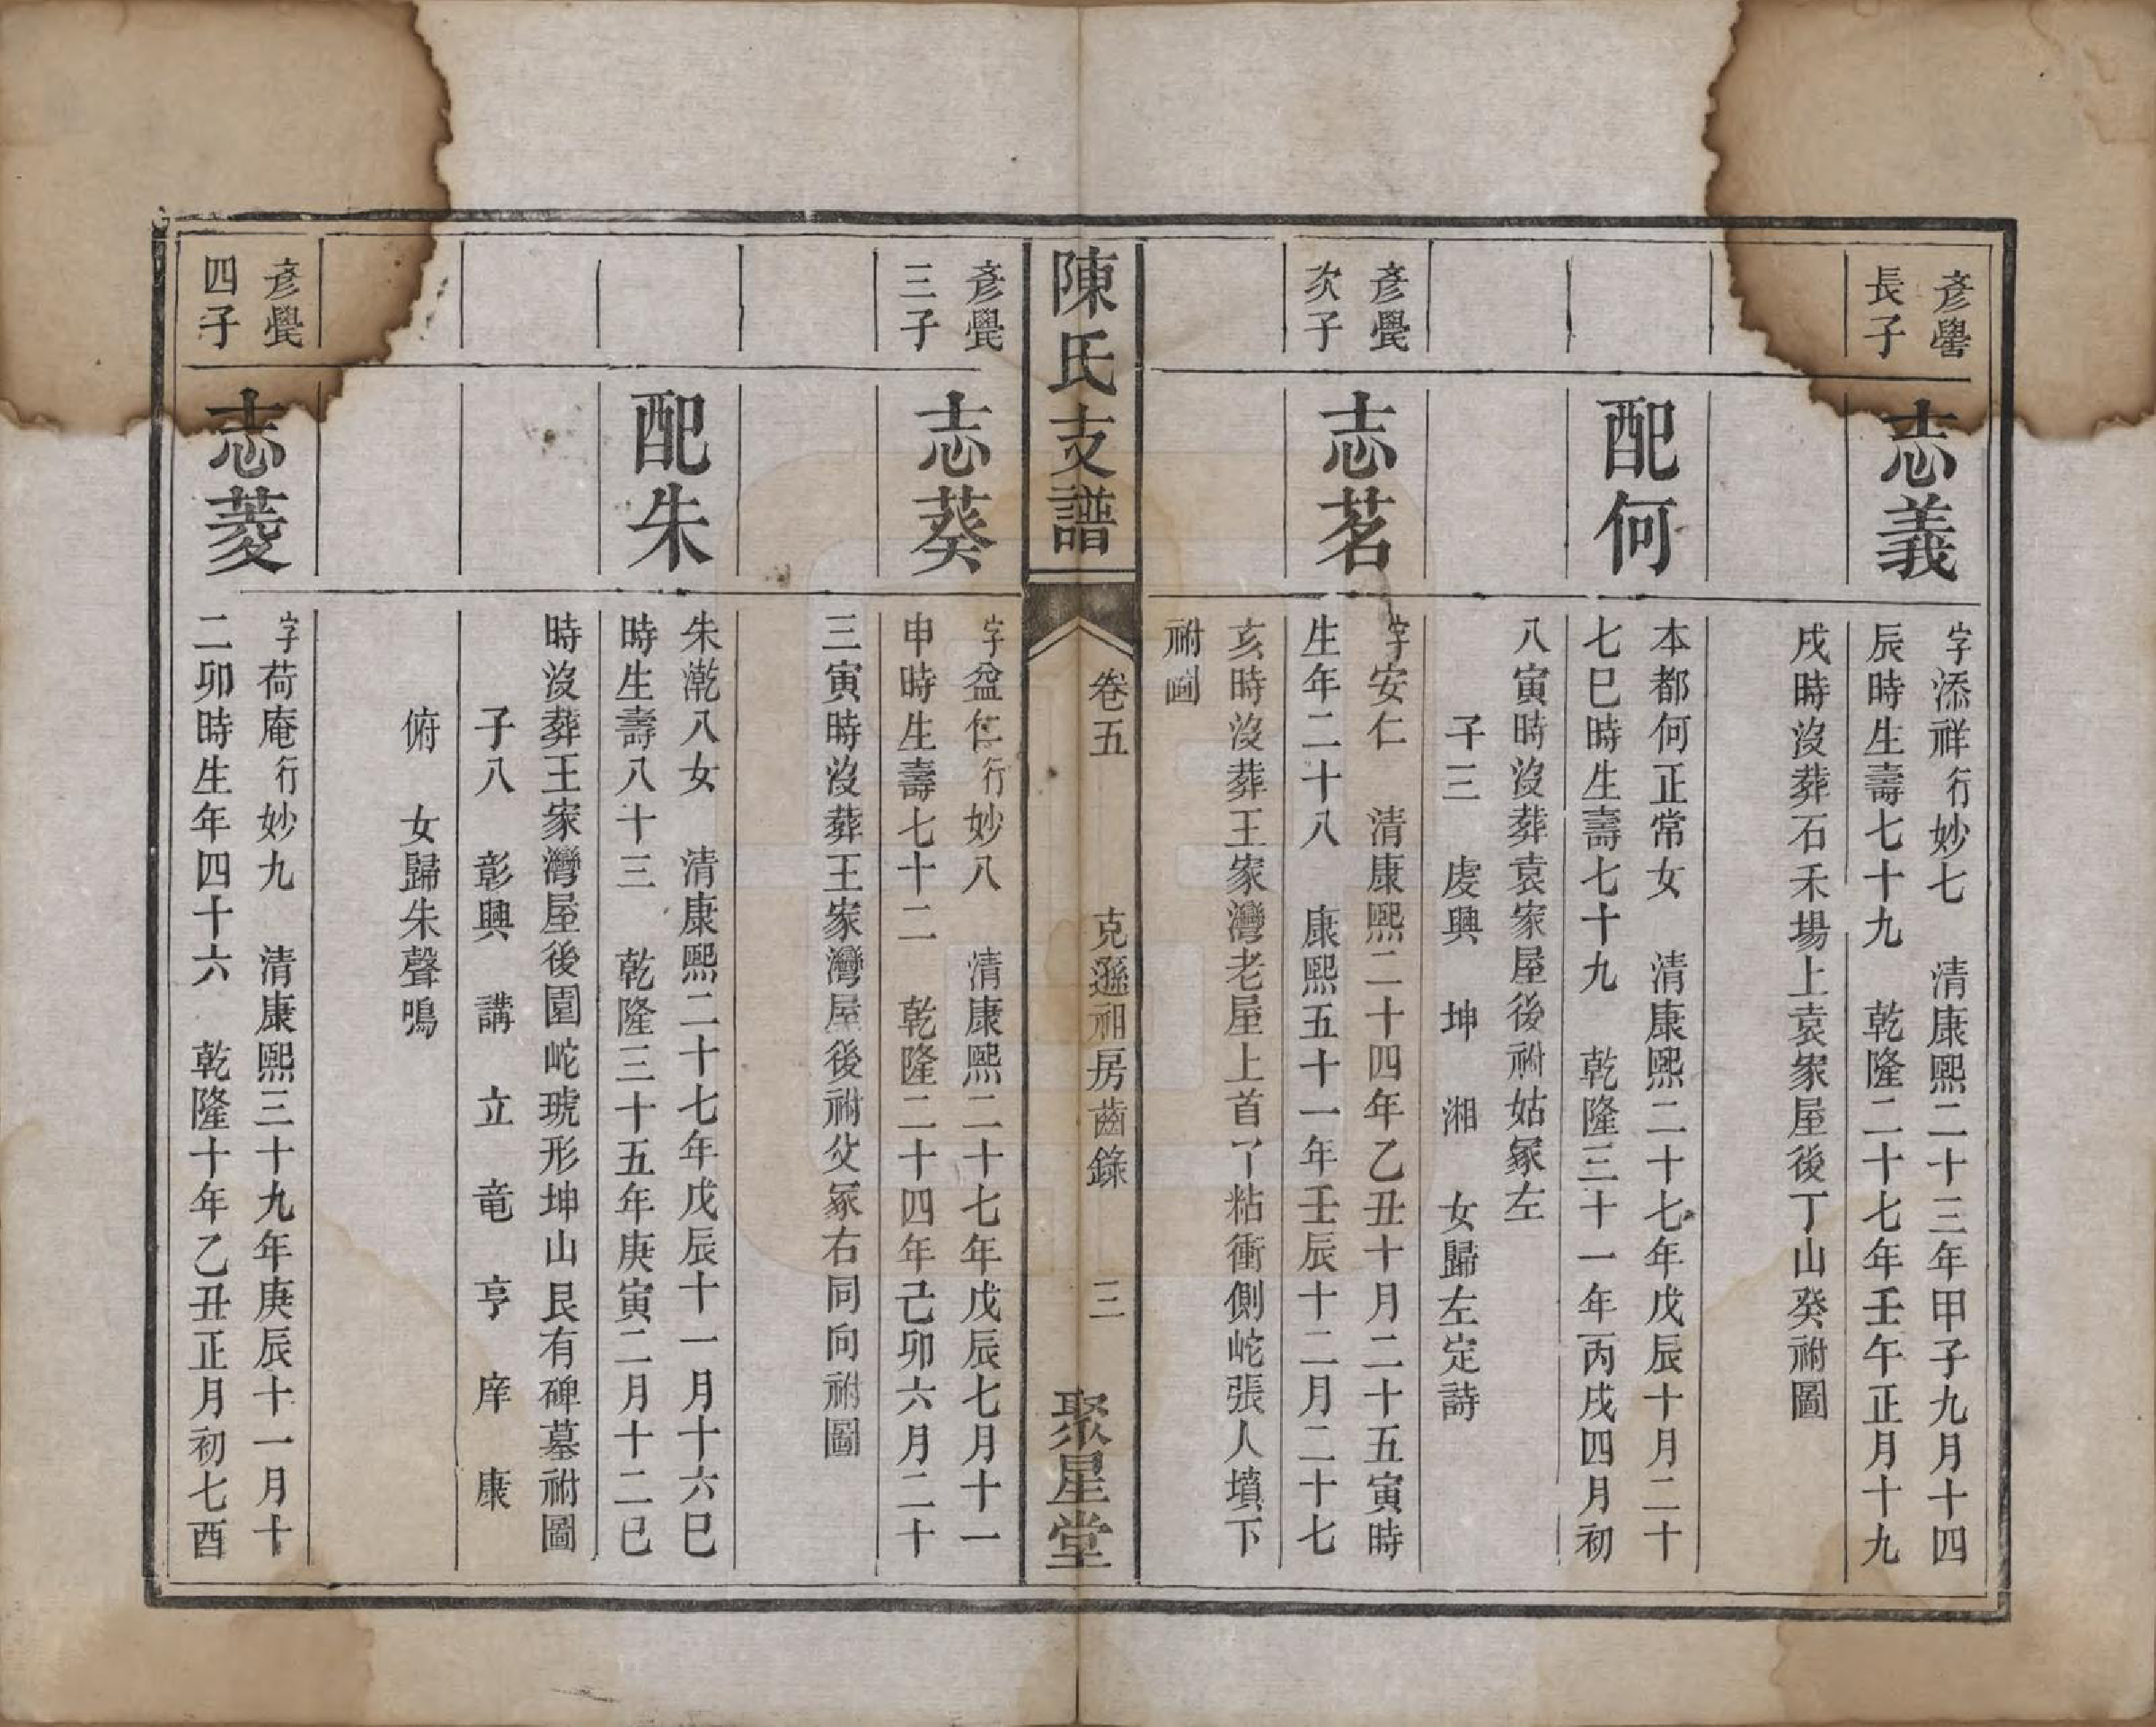 彥璺
長子
志義
字添祥行妙七 清康熙二十三年甲子九月十四
辰時生壽七十九 乾隆二十七年壬午正月十九
戌時沒葬石禾場上袁家屋後丁山癸祔圖
配何
本都何正常女 清康熙二十七年戊辰十月二十
七巳時生壽七十九 乾隆三十一年丙戌四月初
八寅時沒葬袁家屋後祔姑冢左
子三 虔興 坤 湘 女歸左定詩
彥璺
次子
志茗
字安仁 清康熙二十四年乙丑十月二十五寅時
生年二十八 康熙五十一年壬辰十二月二十七
亥時沒葬王家灣老屋上首丫粘衝側岮張人墳下
祔圖
陳氏支譜
卷五
克遜祖房齒錄
三
聚星堂
彥璺
三子
志葵
字盆仁行妙八 清康熙二十七年戊辰七月十一
申時生壽七十二 乾隆二十四年己卯六月二十
三寅時沒葬王家灣屋後祔父冢右同向祔圖
配朱
朱漧八女 清康熙二十七年戊辰十一月十六巳
時生壽八十三 乾隆三十五年庚寅二月十二巳
時沒葬王家灣屋後園岮琥形坤山艮有碑墓祔圖
子八 彰興 講 立 竜 亨 庠 康
俯 女歸朱聲鳴
彥璺
四子
志菱
字荷庵行妙九 清康熙三十九年庚辰十一月十
二卯時生年四十六 乾隆十年乙丑正月初七酉